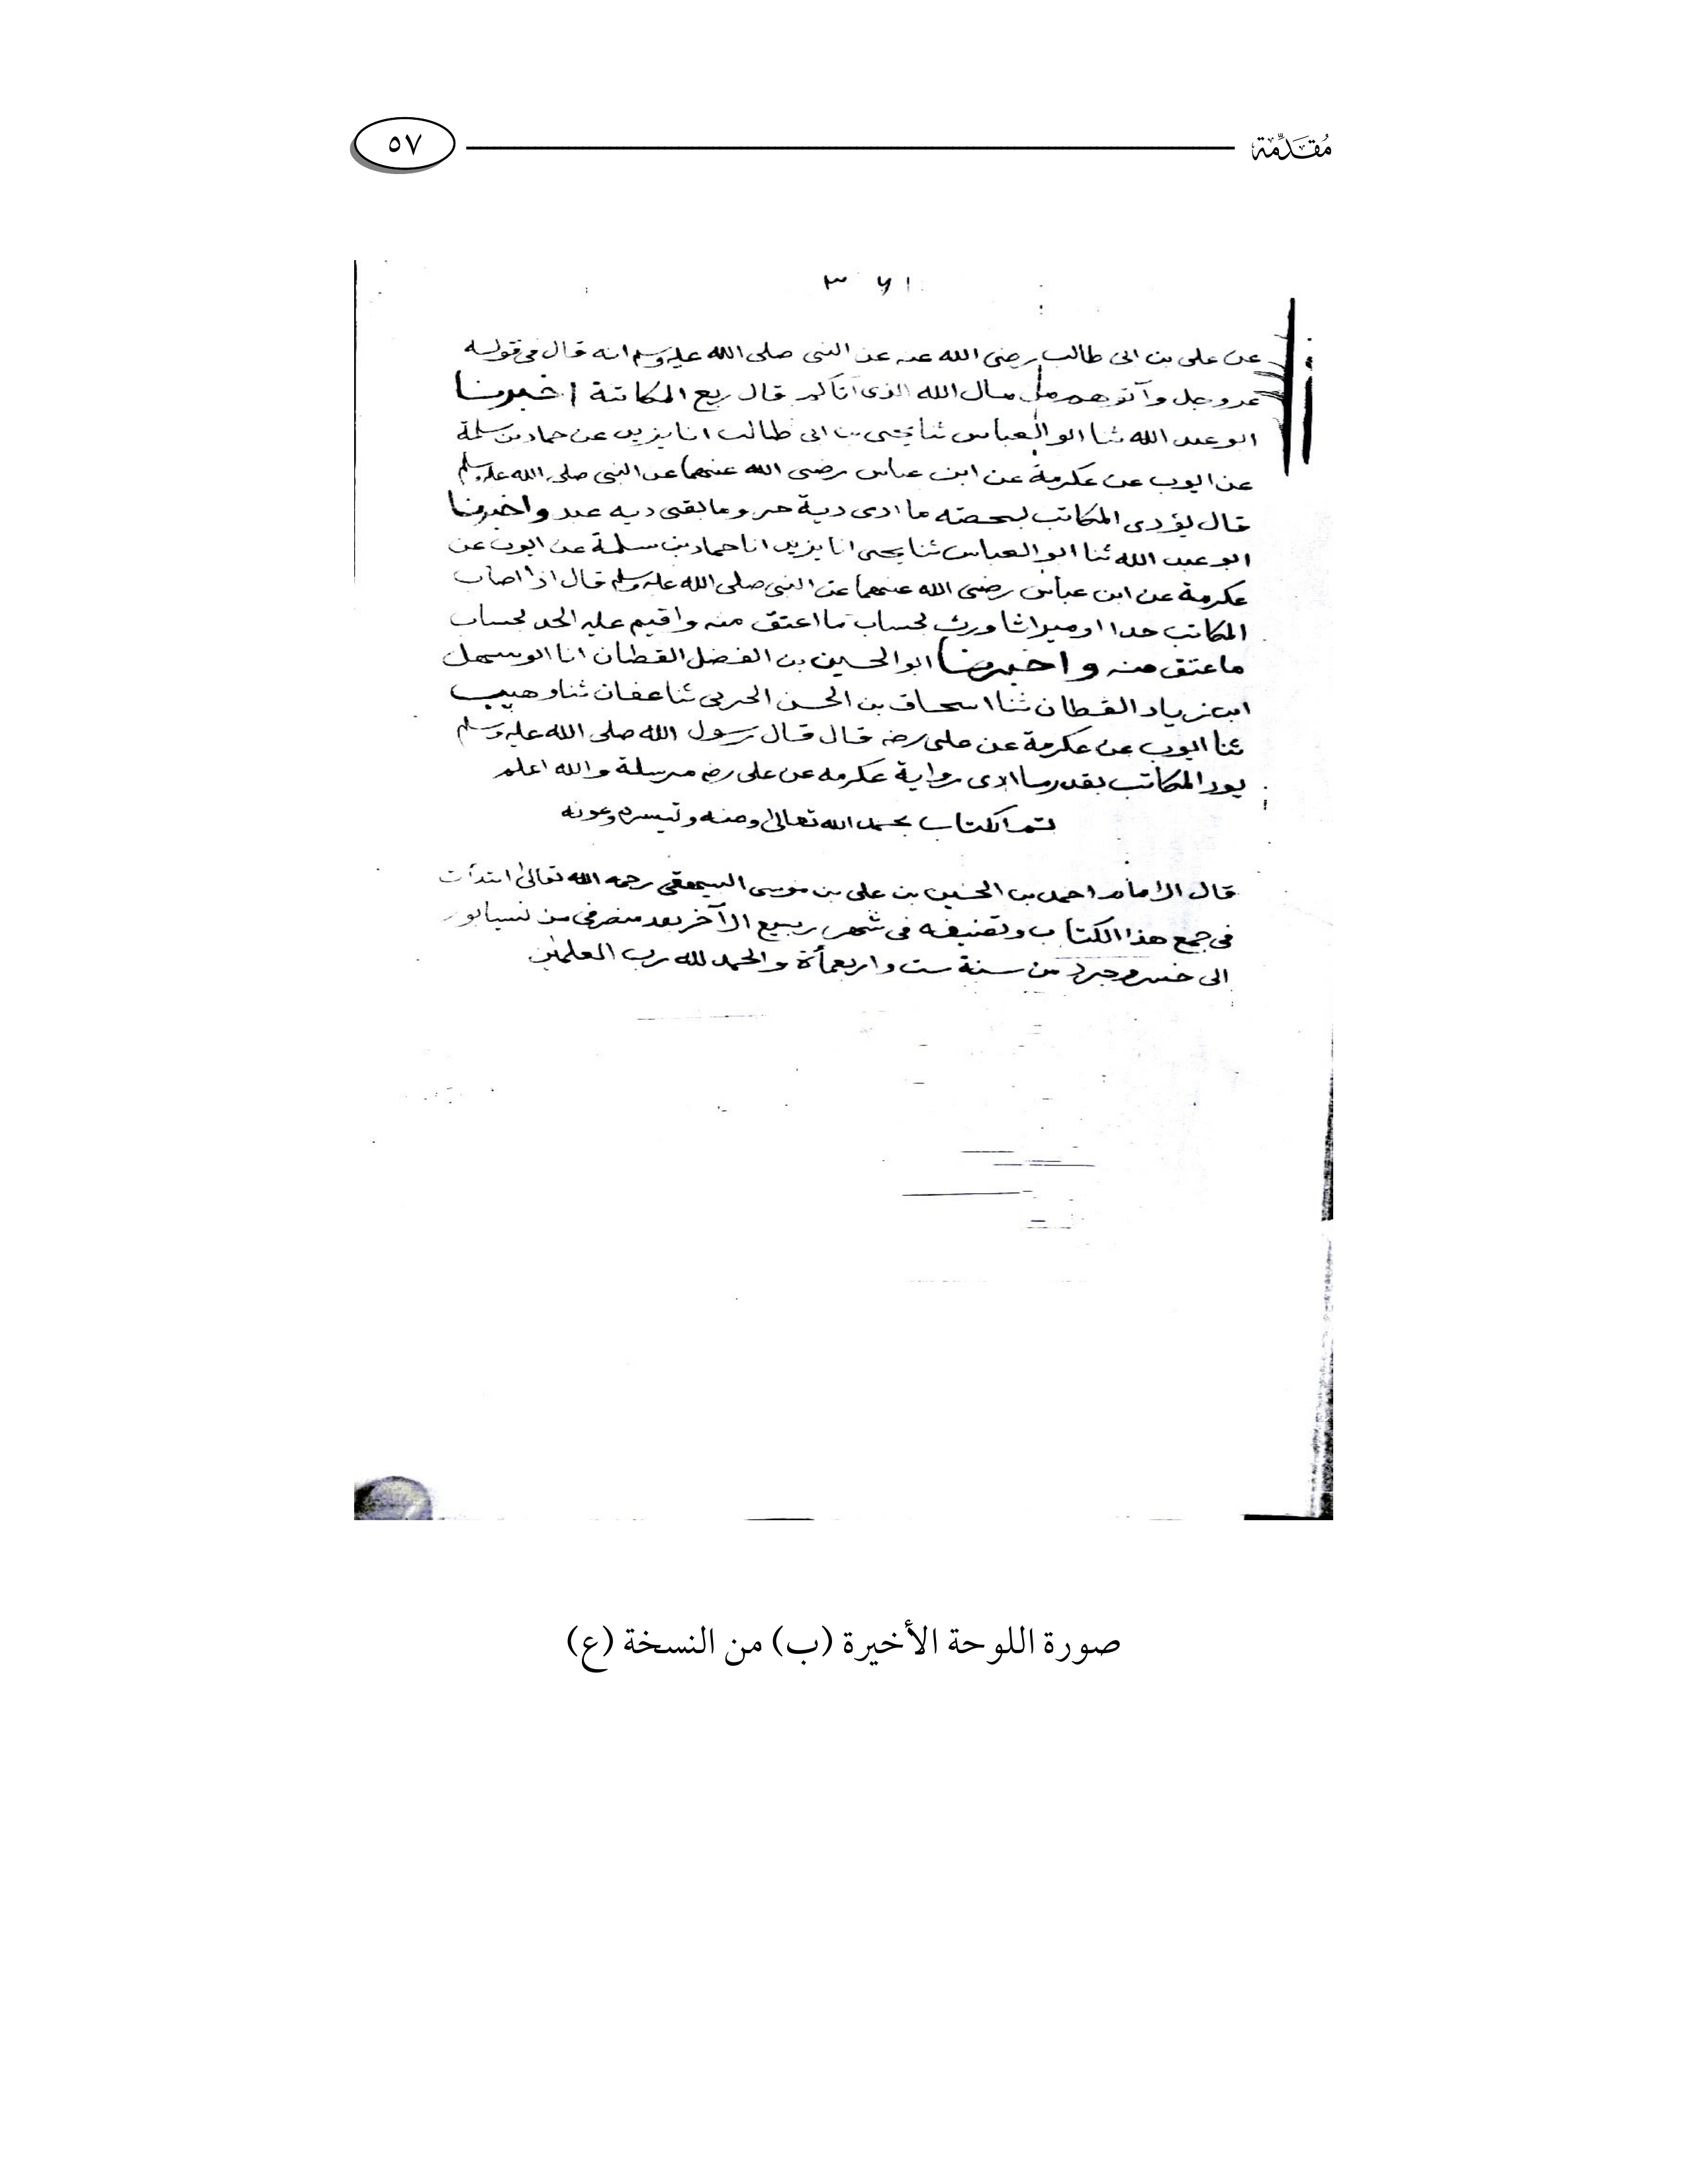 مُقَدِّمَة
٥٧
٣٦١
عن علی بن ابی طالب رضی الله عنه عن النبی صلی الله علیه وسلم انه قال فی قوله
عز وجل وآتوهم من مال الله الذی آتاکم قال ربع المکاتبة اخبرنا
ابو عبد الله ثنا ابو العباس ثنا یحیی بن ابی طالب انا یزید عن حماد بن سلمة
عن ایوب عن عکرمة عن ابن عباس رضی الله عنهما عن النبی صلی الله علیه وسلم
قال یؤدی المکاتب بحصته ما ادی دیة حر وما بقی دیه عبد واخبرنا
ابو عبد الله ثنا ابو العباس ثنا یحیی انا یزید انا حماد بن سلمة عن ایوب عن
عکرمة عن ابن عباس رضی الله عنهما عن النبی صلی الله علیه وسلم قال اذا اصاب
المکاتب حدا او میراثا ورث بحساب ما اعتق منه واقیم علیه الحد بحساب
ما عتق منه واخبرنا ابو الحسین بن الفضل القطان انا ابو سهل
ابن زیاد القطان ثنا اسحاق بن الحسن الحربی ثنا عفان ثنا وهیب
ثنا ایوب عن عکرمة عن علی رضه قال قال رسول الله صلی الله علیه وسلم
یود المکاتب بقدر ما ادی روایة عکرمه عن علی رضه مرسلة والله اعلم
تم الکتاب بحمد الله تعالی ومنه وتیسره وعونه
قال الامام احمد بن الحسین بن علی بن موسی البیهقی رحمه الله تعالی ابتدأت
فی جمع هذا الکتاب وتصنیفه فی شهر ربیع الآخر بعد منصرفی من نیسابور
الی خسروجرد من سنة ست واربعمأة والحمد لله رب العلمین
صورة اللوحة الأخيرة (ب) من النسخة (ع)